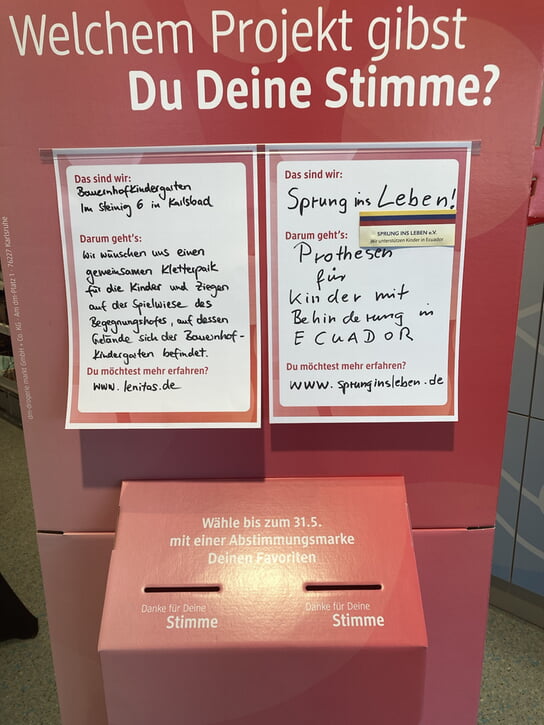 Welchem Projekt gibst
Du Deine Stimme?
Das sind wir:
Bauernhofkindergarten
Im Steinig 6 in Karlsbad
Darum geht's:
Wir wünschen uns einen
gemeinsamen Kletterpark
für die Kinder und Ziegen
auf der Spielwiese des
Begegnungshofes, auf dessen
Gelände sich der Bauernhof-
Kindergarten befindet.
Du möchtest mehr erfahren?
www.lenitas.de
Das sind wir:
Sprung ins Leben!
SPRUNG INS LEBEN e.V.
Wir unterstützen Kinder in Ecuador
Darum geht's:
Prothesen
für
Kinder mit
Behinderung in
ECUADOR
Du möchtest mehr erfahren?
www.sprunginsleben.de
dm-drogerie markt GmbH + Co. KG · Am dm-Platz 1 · 76227 Karlsruhe
Wähle bis zum 31.5.
mit einer Abstimmungsmarke
Deinen Favoriten
Danke für Deine
Stimme
Danke für Deine
Stimme